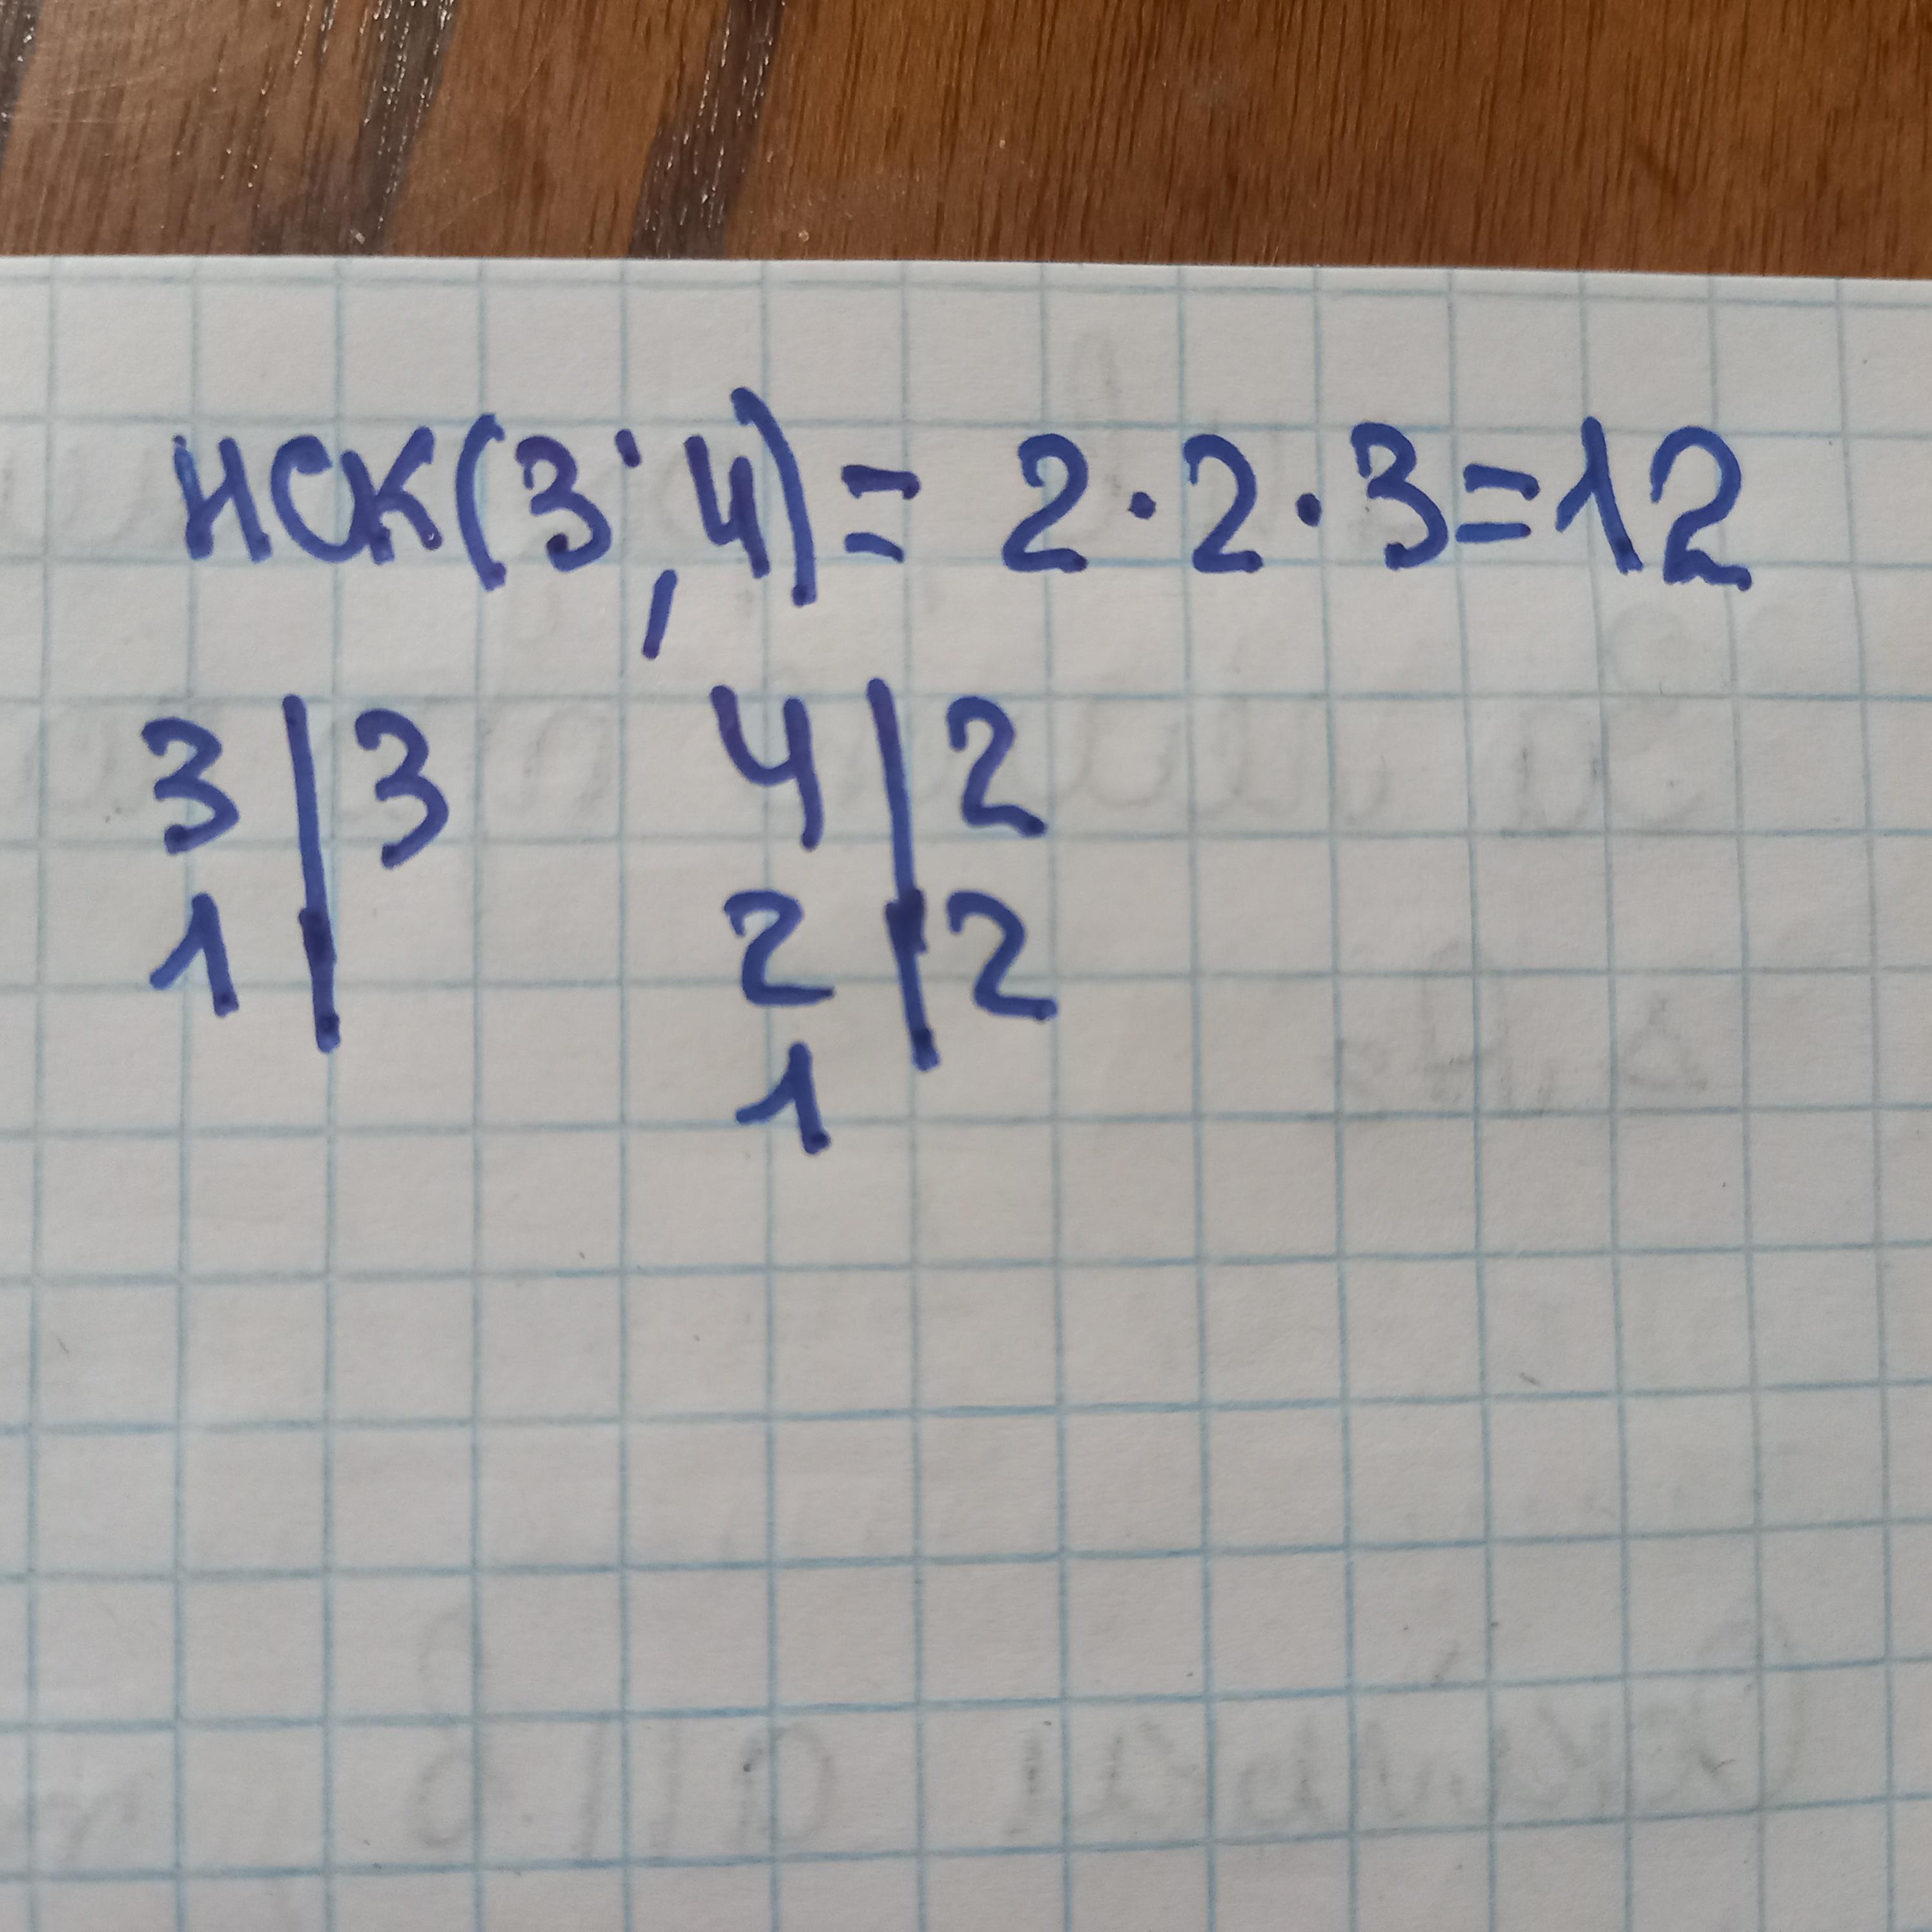 НСК(3;4)= 2·2·3=12
3|3 4|2
1| 2|2
1